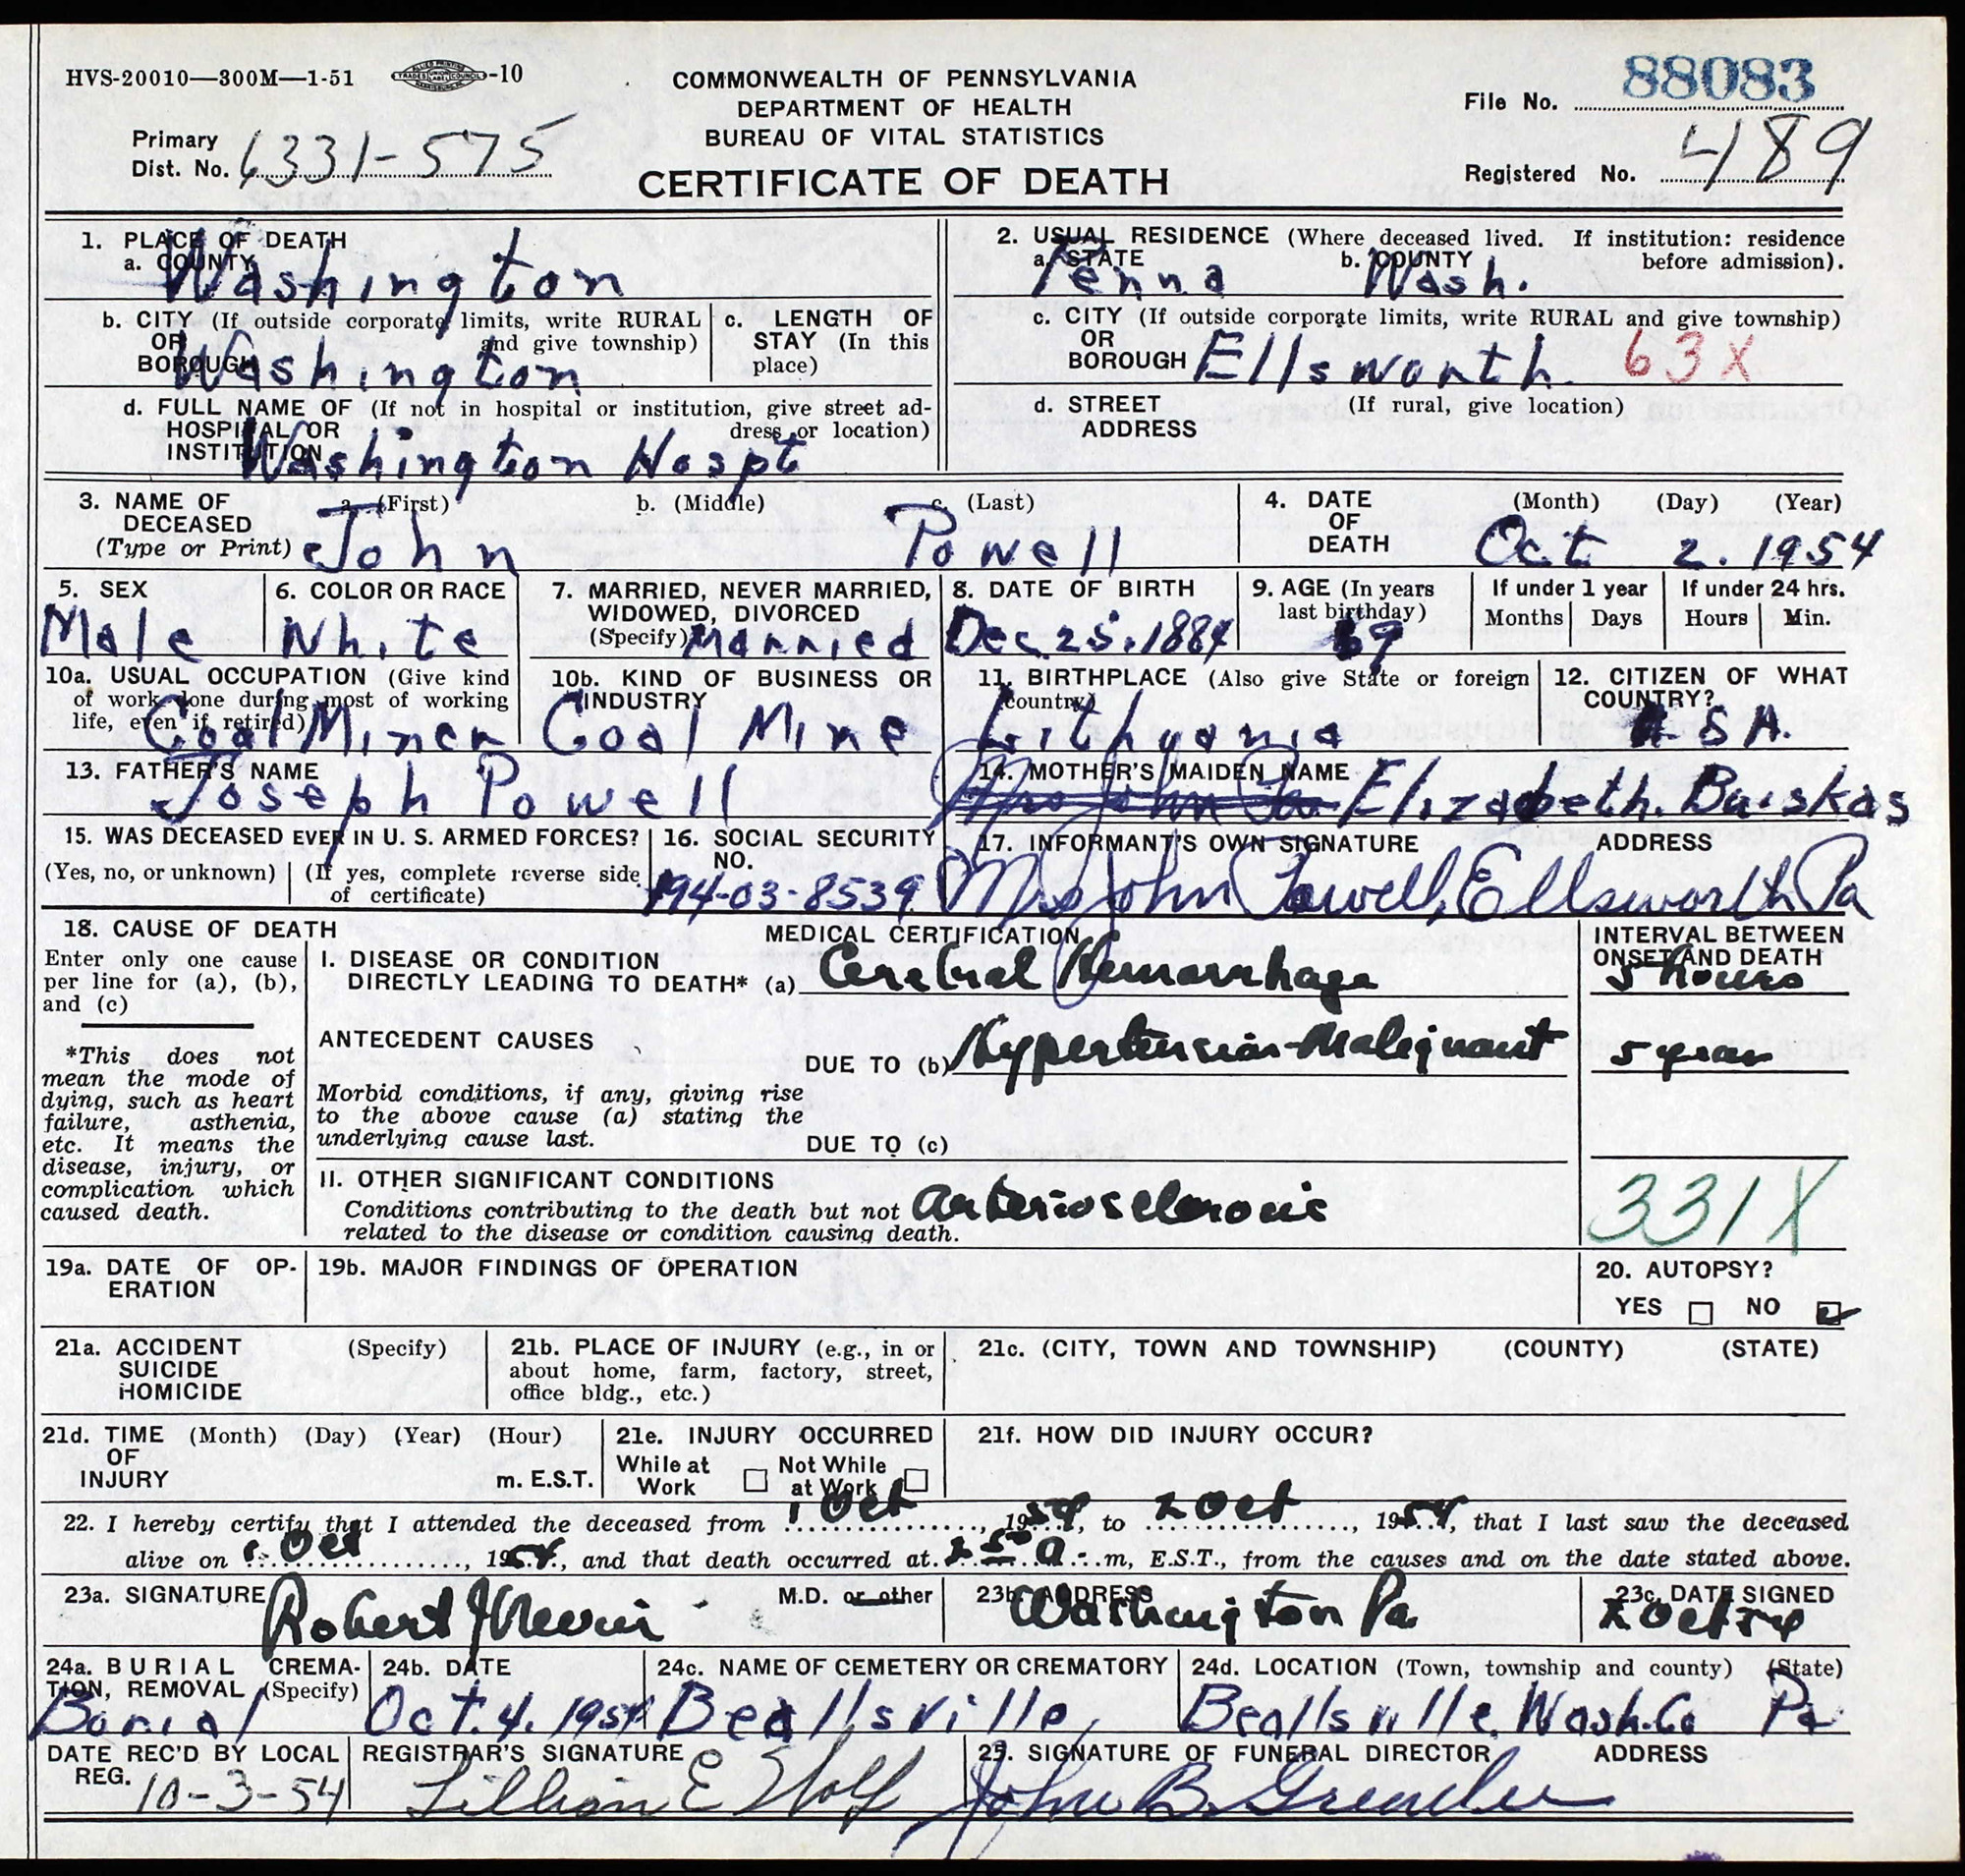 HVS-20010—300M—1-51 -10
COMMONWEALTH OF PENNSYLVANIA
DEPARTMENT OF HEALTH
BUREAU OF VITAL STATISTICS
CERTIFICATE OF DEATH
File No. 88083
Primary Dist. No. 6331-575
Registered No. 489
1. PLACE OF DEATH
a. COUNTY Washington
b. CITY (If outside corporate limits, write RURAL
OR and give township)
BOROUGH Washington
c. LENGTH OF
STAY (In this
place)
d. FULL NAME OF (If not in hospital or institution, give street ad-
HOSPITAL OR dress or location)
INSTITUTION Washington Hospt
2. USUAL RESIDENCE (Where deceased lived. If institution: residence
before admission).
a. STATE Penna b. COUNTY Wash.
c. CITY (If outside corporate limits, write RURAL and give township)
OR
BOROUGH Ellsworth. 63X
d. STREET (If rural, give location)
ADDRESS
3. NAME OF a. (First) b. (Middle) c. (Last)
DECEASED
(Type or Print) John Powell
4. DATE (Month) (Day) (Year)
OF
DEATH Oct 2. 1954
5. SEX
Male
6. COLOR OR RACE
White
7. MARRIED, NEVER MARRIED,
WIDOWED, DIVORCED
(Specify) Married
8. DATE OF BIRTH
Dec. 25. 1884
9. AGE (In years
last birthday)
69
If under 1 year
Months Days
If under 24 hrs.
Hours Min.
10a. USUAL OCCUPATION (Give kind
of work done during most of working
life, even if retired) Coal Miner
10b. KIND OF BUSINESS OR
INDUSTRY
Coal Mine
11. BIRTHPLACE (Also give State or foreign
country)
Lithuania
12. CITIZEN OF WHAT
COUNTRY?
U S A.
13. FATHER'S NAME
Joseph Powell
14. MOTHER'S MAIDEN NAME
Mrs John Elizabeth. Baiskas
15. WAS DECEASED EVER IN U. S. ARMED FORCES?
(Yes, no, or unknown) (If yes, complete reverse side
of certificate)
16. SOCIAL SECURITY
NO.
194-03-8539
17. INFORMANT'S OWN SIGNATURE ADDRESS
Mrs John Powell, Ellsworth Pa
18. CAUSE OF DEATH
Enter only one cause
per line for (a), (b),
and (c)
*This does not
mean the mode of
dying, such as heart
failure, asthenia,
etc. It means the
disease, injury, or
complication which
caused death.
MEDICAL CERTIFICATION
INTERVAL BETWEEN
ONSET AND DEATH
I. DISEASE OR CONDITION
DIRECTLY LEADING TO DEATH* (a) Cerebral Hemorrhage 5 hours
ANTECEDENT CAUSES
DUE TO (b) Hypertension-Malignant 5 year
Morbid conditions, if any, giving rise
to the above cause (a) stating the
underlying cause last.
DUE TO (c)
II. OTHER SIGNIFICANT CONDITIONS
Conditions contributing to the death but not
related to the disease or condition causing death.
Arteriosclerosis
331X
19a. DATE OF OP-
ERATION
19b. MAJOR FINDINGS OF OPERATION
20. AUTOPSY?
YES NO
21a. ACCIDENT (Specify)
SUICIDE
HOMICIDE
21b. PLACE OF INJURY (e.g., in or
about home, farm, factory, street,
office bldg., etc.)
21c. (CITY, TOWN AND TOWNSHIP) (COUNTY) (STATE)
21d. TIME (Month) (Day) (Year) (Hour)
OF
INJURY m. E.S.T.
21e. INJURY OCCURRED
While at Work Not While at Work
21f. HOW DID INJURY OCCUR?
22. I hereby certify that I attended the deceased from 1 Oct, 1954, to 2 Oct, 1954, that I last saw the deceased
alive on 1 Oct, 1954, and that death occurred at 2 50 a.m, E.S.T., from the causes and on the date stated above.
23a. SIGNATURE Robert M.D. or other
23b. ADDRESS
Washington Pa
23c. DATE SIGNED
2 Oct 54
24a. BURIAL CREMA-
TION, REMOVAL (Specify)
Burial
24b. DATE
Oct. 4. 1954
24c. NAME OF CEMETERY OR CREMATORY
Beallsville,
24d. LOCATION (Town, township and county) (State)
Beallsville. Wash. Co Pa
DATE REC'D BY LOCAL
REG. 10-3-54
REGISTRAR'S SIGNATURE
Lillian E Wolf
25. SIGNATURE OF FUNERAL DIRECTOR ADDRESS
John B.